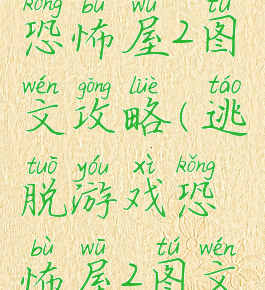 kǒng bù wū tú
恐怖屋2图
wén gōng lüè táo
文攻略(逃
tuō yóu xì kǒng
脱游戏恐
bù wū tú wén
怖屋2图文